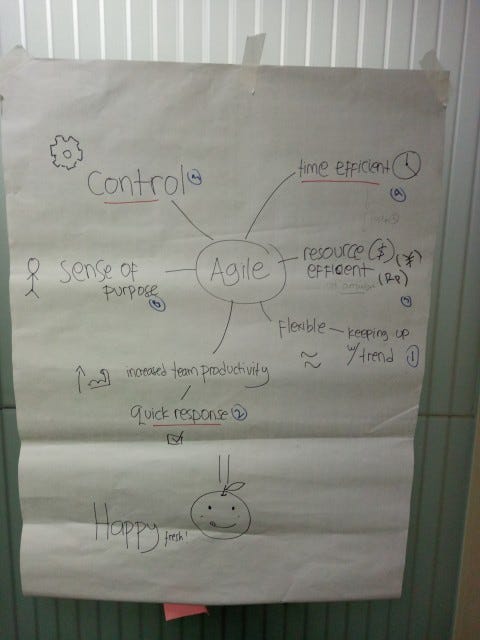 control
time efficient
Agile
resource ($)
efficient
(Rp)
sense of
purpose
flexible – keeping up
w/ trend ①
increased team productivity
quick response ②
Happy fresh!